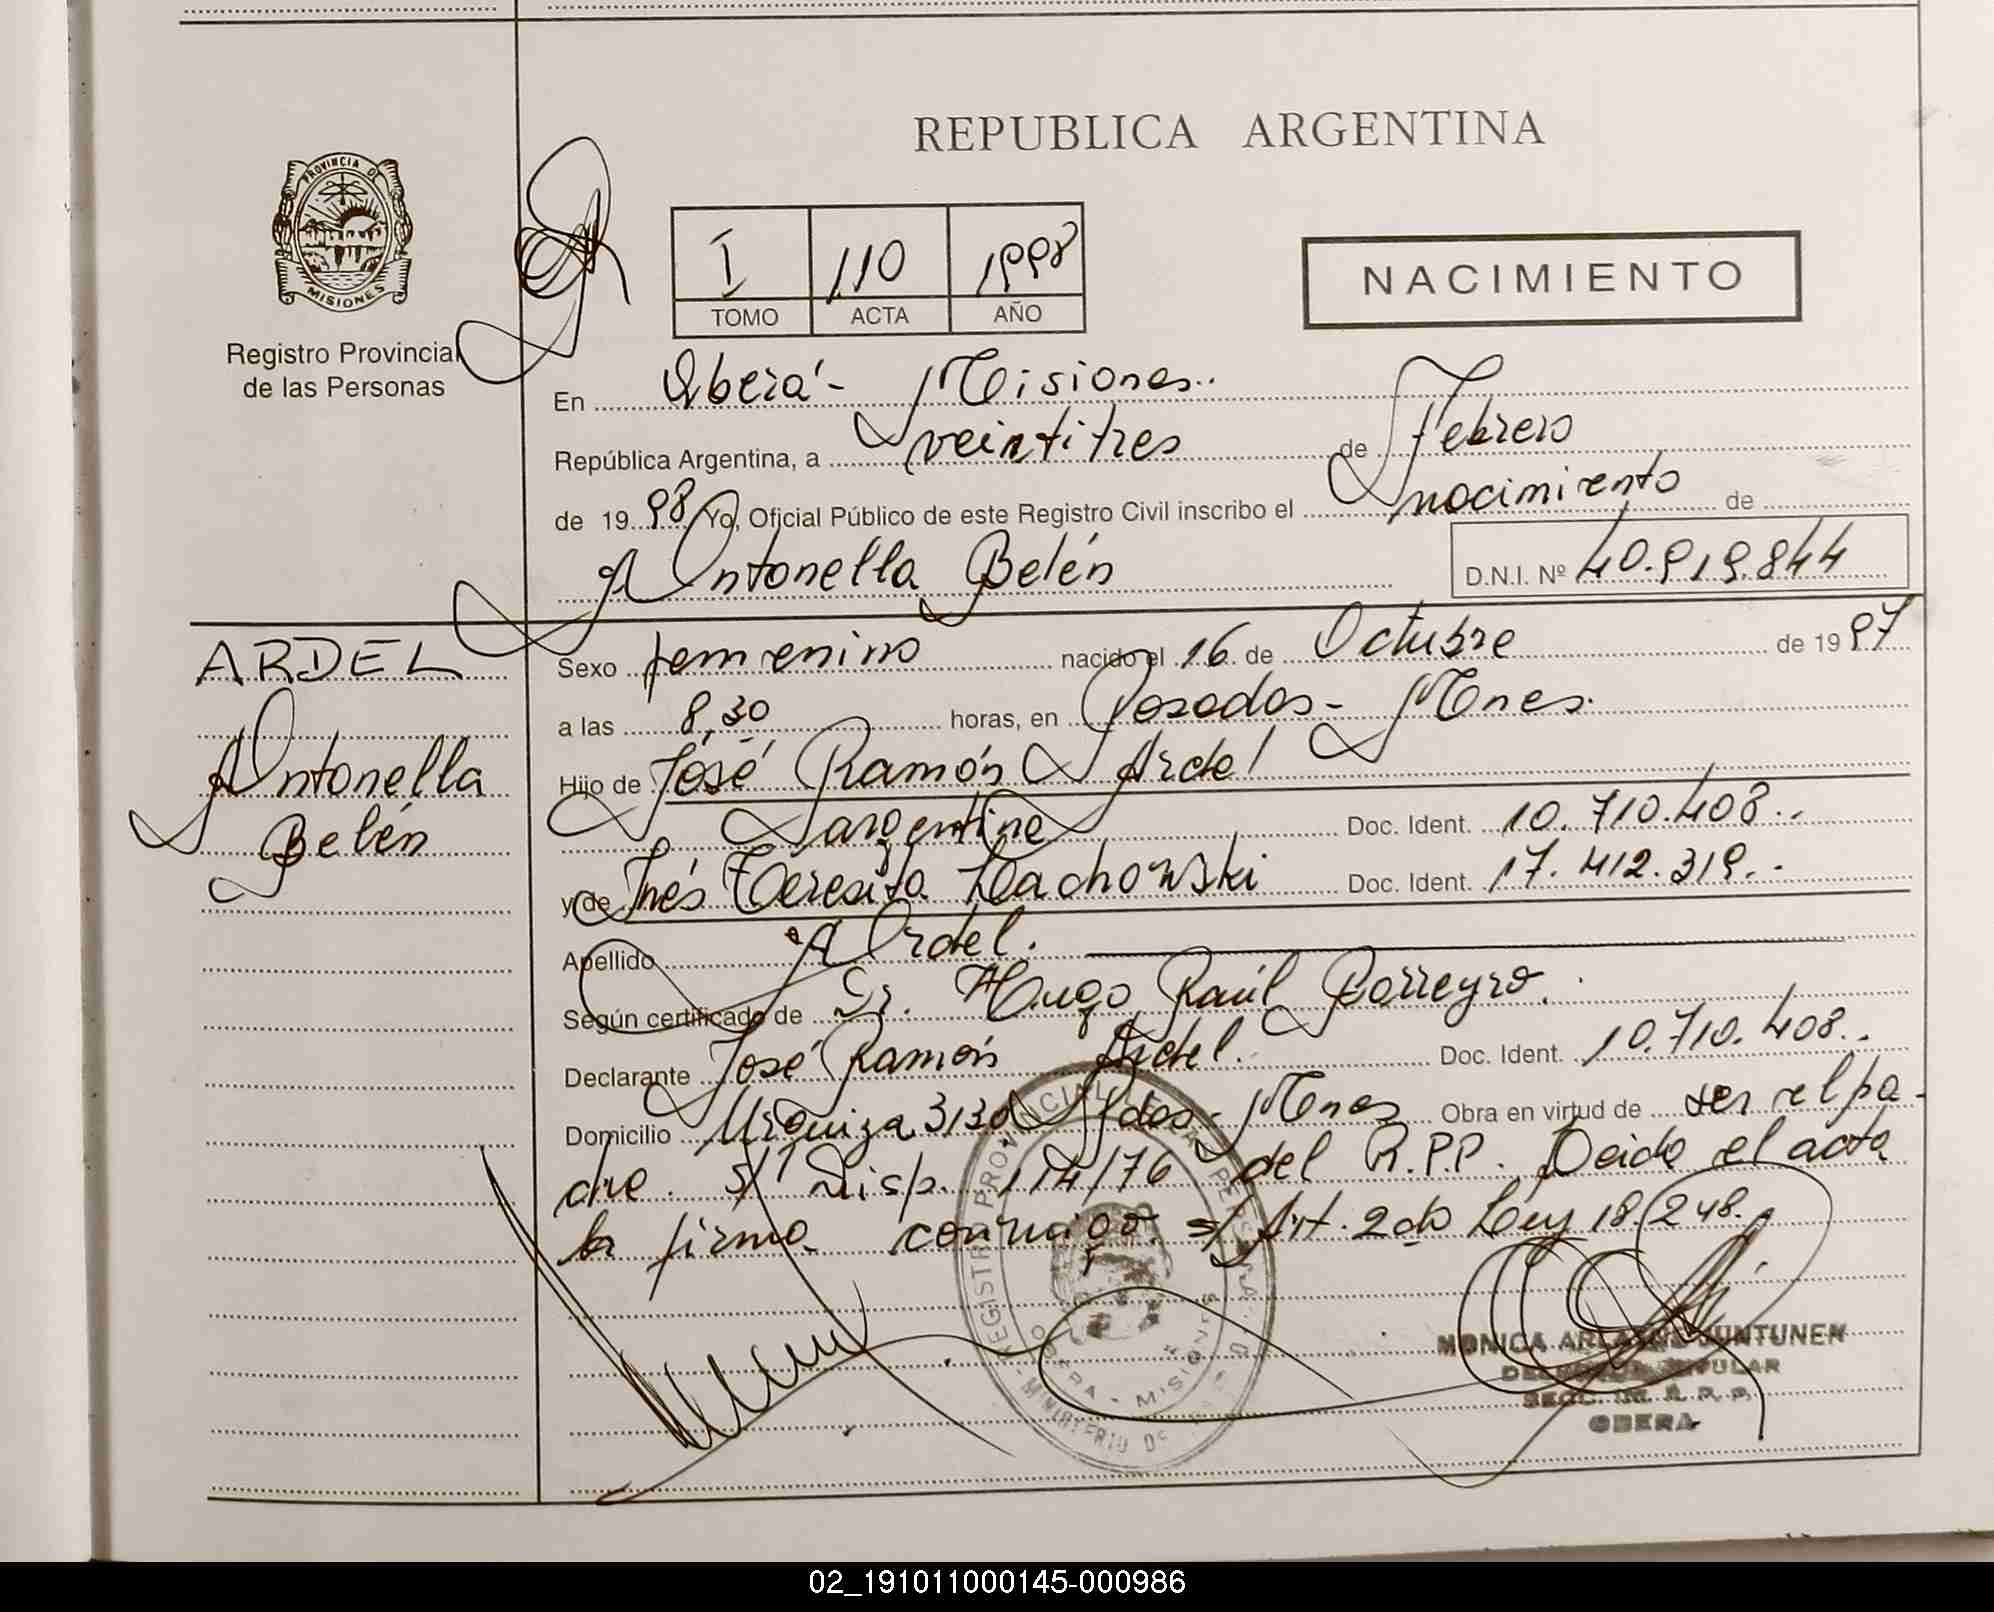 REPUBLICA ARGENTINA
PROVINCIA DE
MISIONES
Registro Provincial
de las Personas
I 110 1998
TOMO ACTA AÑO
NACIMIENTO
En Oberá - Misiones..
República Argentina, a veintitres de Febrero
de 19 98 Yo, Oficial Público de este Registro Civil inscribo el nacimiento de
Antonella Belén D.N.I. Nº 40.919.844
ARDEL
Antonella
Belén
Sexo femenino nacido el 16 de Octubre de 19 97
a las 8,30 horas, en Posadas - Mnes.
Hijo de José Ramón Ardel
argentino Doc. Ident. 10.710.408..
y de Inés Teresita Lachowski Doc. Ident. 17.412.319..
Apellido Ardel.
Según certificado de Dr. Hugo Raúl Borreyro.
Declarante José Ramón Ardel. Doc. Ident. 10.710.408..
Domicilio Urquiza 3130 Pdas - Mnes Obra en virtud de ser el pa-
dre. s/ Disp. 114/76 del R.P.P. Leida el acta
la firma conmigo. s/ Art. 2do Ley 18.248.
REGISTRO PROVINCIAL DE LAS PERSONAS
OBERA - MISIONES
MINISTERIO DE
MONICA ARLAENE JUNTUNEN
OBERA
02_191011000145-000986